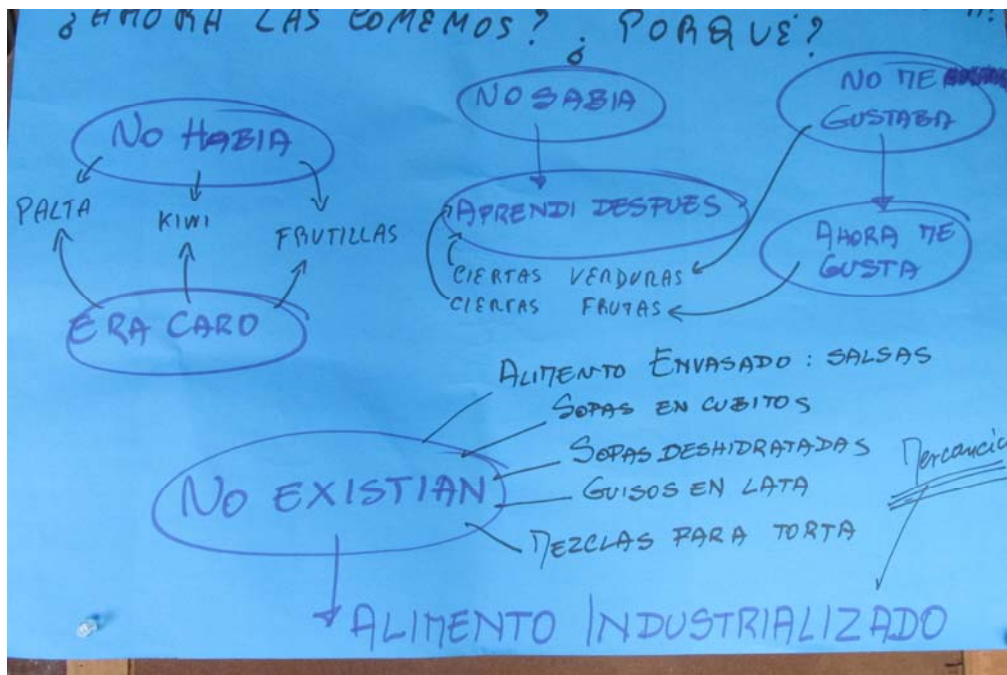 ¿AHORA LAS COMEMOS? ¿PORQUE?
NO HABIA
PALTA
KIWI
FRUTILLAS
ERA CARO
NO SABIA
APRENDI DESPUES
CIERTAS VERDURAS
CIERTAS FRUTAS
NO ME
GUSTABA
AHORA ME
GUSTA
NO EXISTIAN
ALIMENTO ENVASADO: SALSAS
SOPAS EN CUBITOS
SOPAS DESHIDRATADAS
GUISOS EN LATA
MEZCLAS PARA TORTA
Mercancia
ALIMENTO INDUSTRIALIZADO